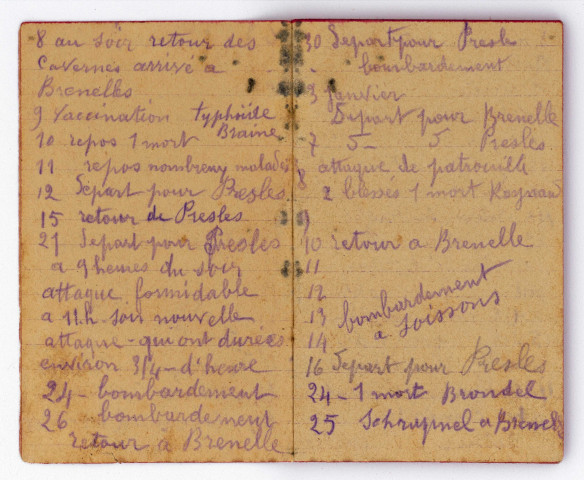 8 au soir retour des
cavernes arrivé a
Brenelles
9 Vaccination typhoïde
Braine
10 repos 1 mort
11 repos nombreux malades
12 Départ pour Presles
15 retour de Presles
21 Depart pour Presles
a 9 heures du soir
attaque formidable
a 11.h. soir nouvelle
attaque - qui ont durées
environ 3/4 - d'heure
24 - bombardement
26 - bombardement
retour à Brenelle
30 Depart pour Presle
- bombardement
3 Janvier
Départ pour Brenelle
7 5 - 5 Presles
8 attaque de patrouille
2 blessés 1 mort
9
10 retour a Brenelle
11
12
13 bombardement
14 a Soissons
16 Depart pour Presles
24 - 1 mort Brondel
25 Schrapnel a Brenel